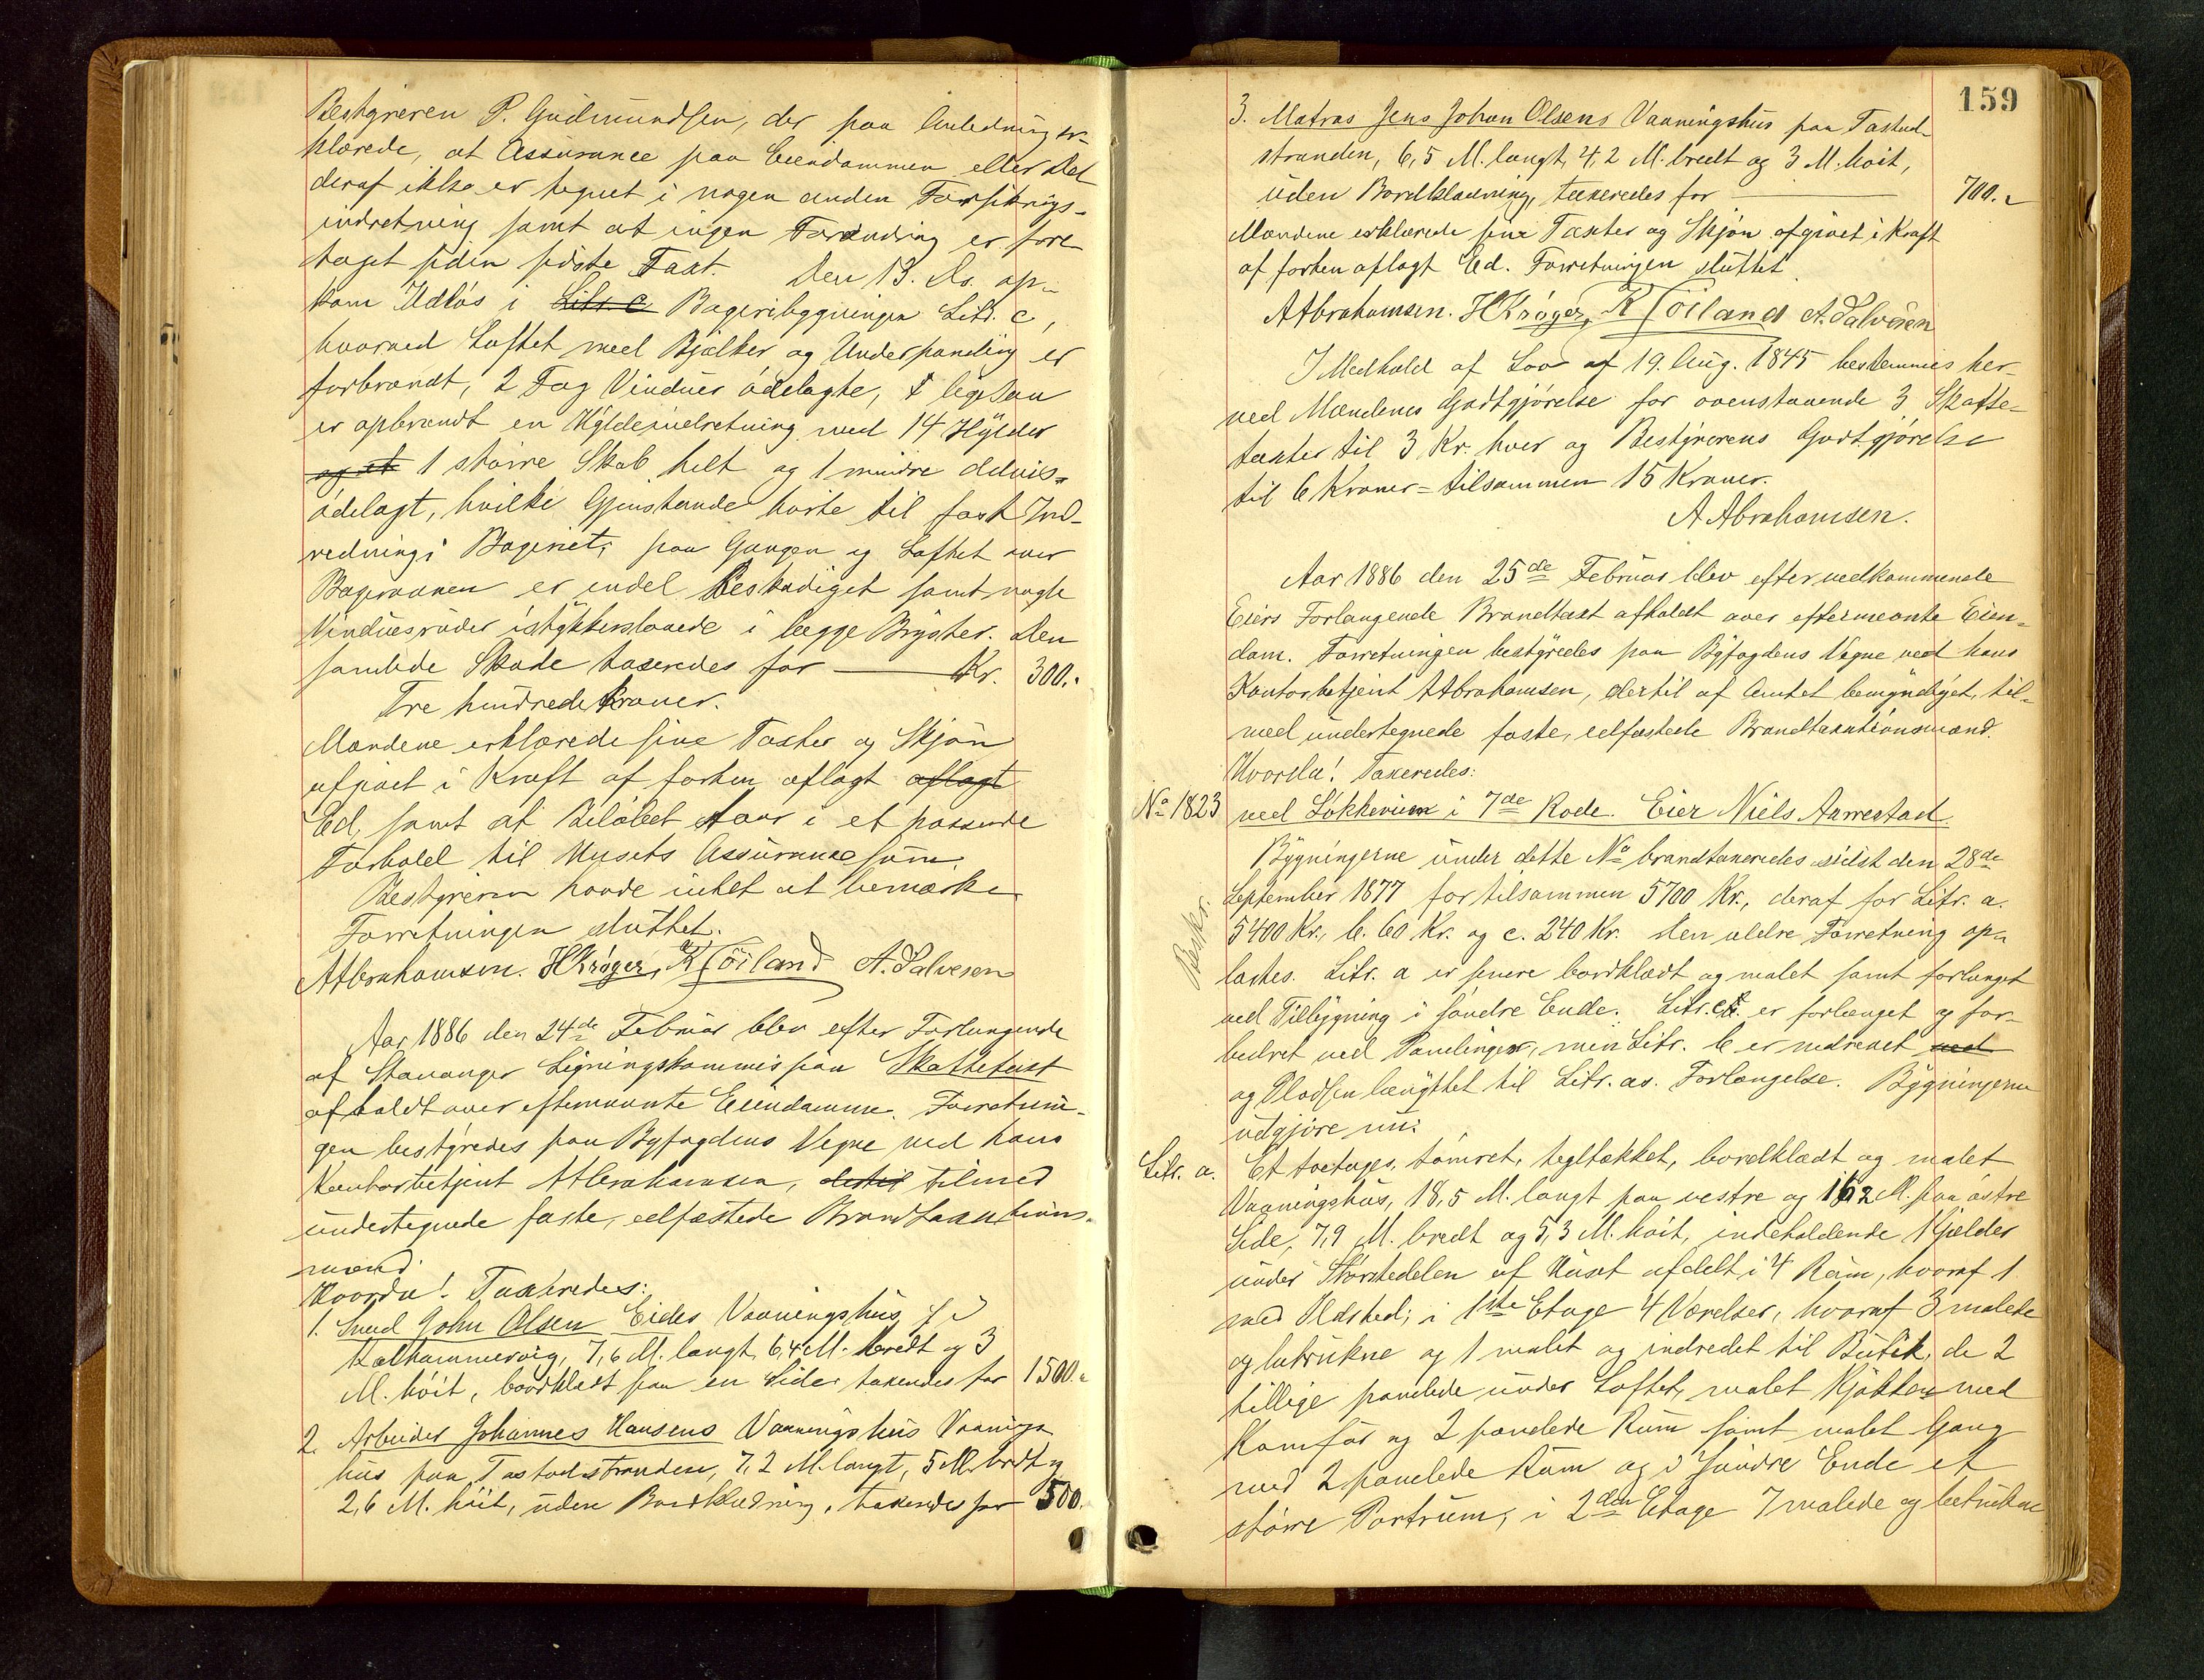 Bestyreren P. Gudmundsen, der paa Anledning er-
klærede, at Assurance paa Eiendommen eller Del
deraf ikke er tegnet i nogen anden Forsikrings-
indretning samt at ingen Forandring er fore
taget siden sidste Taxt. Den 13. ds. op-
kom Ildløs i Litr. c Bageribygningen Litr. c,
hvorved Loftet med Bjælker og Underpanding er
forbrændt, 2 Fag Vinduer ødelagte, ligesaa
er opbrændt en Hyldeindretning med 14 Hylder
og et 1 større Skab helt og 1 mindre delvis
ødelagt, hvilke Gjenstande hørte til fast Ind-
redning i Bageriet; paa Gangen og Loftet over
Bagerovnen er endel beskadiget samt nogle
Vinduesruder istykkerslaaede i begge Bryster. Den
samlede Skade taxeredes for — Kr. 300.
Tre hundrede Kroner.
Mændene erklærede sine Taxter og Skjøn
afgivet i Kraft af forhen aflagt aflagt
Ed, samt at Beløbet staar i et passende
Forhold til Husets Assurancesum.
Bestyreren havde intet at bemærke
Forretningen sluttet.
A Abrahamsen. H Krøger, K Høiland A. Salvesen
Aar 1886 den 24de Februar blev efter Forlangende
af Stavanger Ligningskommission Skattetaxt
afholdt over efternævnte Eiendomme. Forretnin-
gen bestyredes paa Byfogdens Vegne ved hans
Kontorbetjent A Abrahamsen, dertil tilmed
undertegnede faste, edfæstede Brandtaxations-
mænd.
Hvorda! Taxeredes:
1. Smed John Olsen Eides Vaaningshus i
Kalhammervig, 7,6 M. langt, 6,4 M. bredt og 3
M. høit, bordklædt paa en Side, taxeredes for 1500.
2. Arbeider Johannes Hansens Vaaningshus Vaanings
hus paa Tastadstranden, 7,2 M. langt, 5 M. bredt og
2,6 M. høit, uden Bordklædning, taxeredes for 500.
159
3. Matros Jens Johan Olsens Vaaningshus paa Tastad-
stranden, 6,5 M. langt, 4,2 M. bredt og 3 M. høit,
uden Bordklædning, taxeredes for — 700.
Mændene erklærede sine Taxter og Skjøn afgivet i Kraft
af forhen aflagt Ed. Forretningen sluttet
A Abrahamsen. H Krøger, K Høiland A. Salvesen
I Medhold af Lov af 19. Aug. 1845 bestemmes her-
ved Mændenes Godtgjørelse for ovenstaaende 3 Skatte-
taxter til 3 Kr. hver og Bestyrerens Godtgjørelse
til 6 Kroner = tilsammen 15 Kroner.
A Abrahamsen.
Aar 1886 den 25de Februar blev efter vedkommende
Eiers Forlangende Brandtaxt afholdt over eftermeonte Eien-
dom. Forretningen bestyredes paa Byfogdens Vegne ved hans
Kontorbetjent A Abrahamsen, dertil af Amtet bemyndiget, til-
med undertegnede faste, edfæstede Brandtaxationsmænd.
Hvorda! Taxeredes:
No 1823 ved Løkkeveien i 7de Rode. Eier Niels Aarrestad
Bygningerne under dette No brandtaxeredes sidst den 28de
September 1877 for tilsammen 5700 Kr., deraf for Litr. a.
5400 Kr., b. 60 Kr. og c. 240 Kr. Den ældre Forretning op-
Beskr.
læstes. Litr. a er senere bordklædt og malet samt forlænget
ved Tilbygning i søndre Ende. Litr. c. er forlænget og for-
bedret ved Panelinger, men Litr. b er nedrevet med
og Pladsen benyttet til Litr. as. Forlængelse. Bygningerne
udgjøre nu:
Litr. a. Et toetages, tømret, tegltækket, bordklædt og malet
Vaaningshus, 18,5 M. langt paa vestre og 16,2 M. paa østre
Side, 7,9 M. bredt og 5,3 M. høit, indeholdende 1 Kjælder
under Størstedelen af Huset afdelt i 4 Rum, hvoraf 1
med Ildsted; i 1ste Etage 4 Værelser, hvoraf 3 malede
og betrukne og 1 malet og indredet til Butik, de 2
tillige panelede under Loftet, malet Kjøkken med
Komfur og 2 panelede Rum samt malet Gang
med 2 panelede Rum og i søndre Ende et
større Portrum; i 2den Etage 7 malede og betrukne